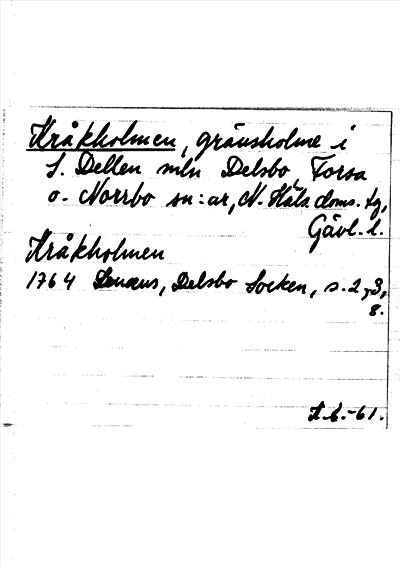 Kråkholmen, gränsholme i
S. Dellen mln Delsbo, Forsa
o. Norrbo sn:ar, N. Häls doms. tg,
Gävl. l.
Kråkholmen
1764 Lenæus, Delsbo Socken, s. 2, 3,
8.
-61.